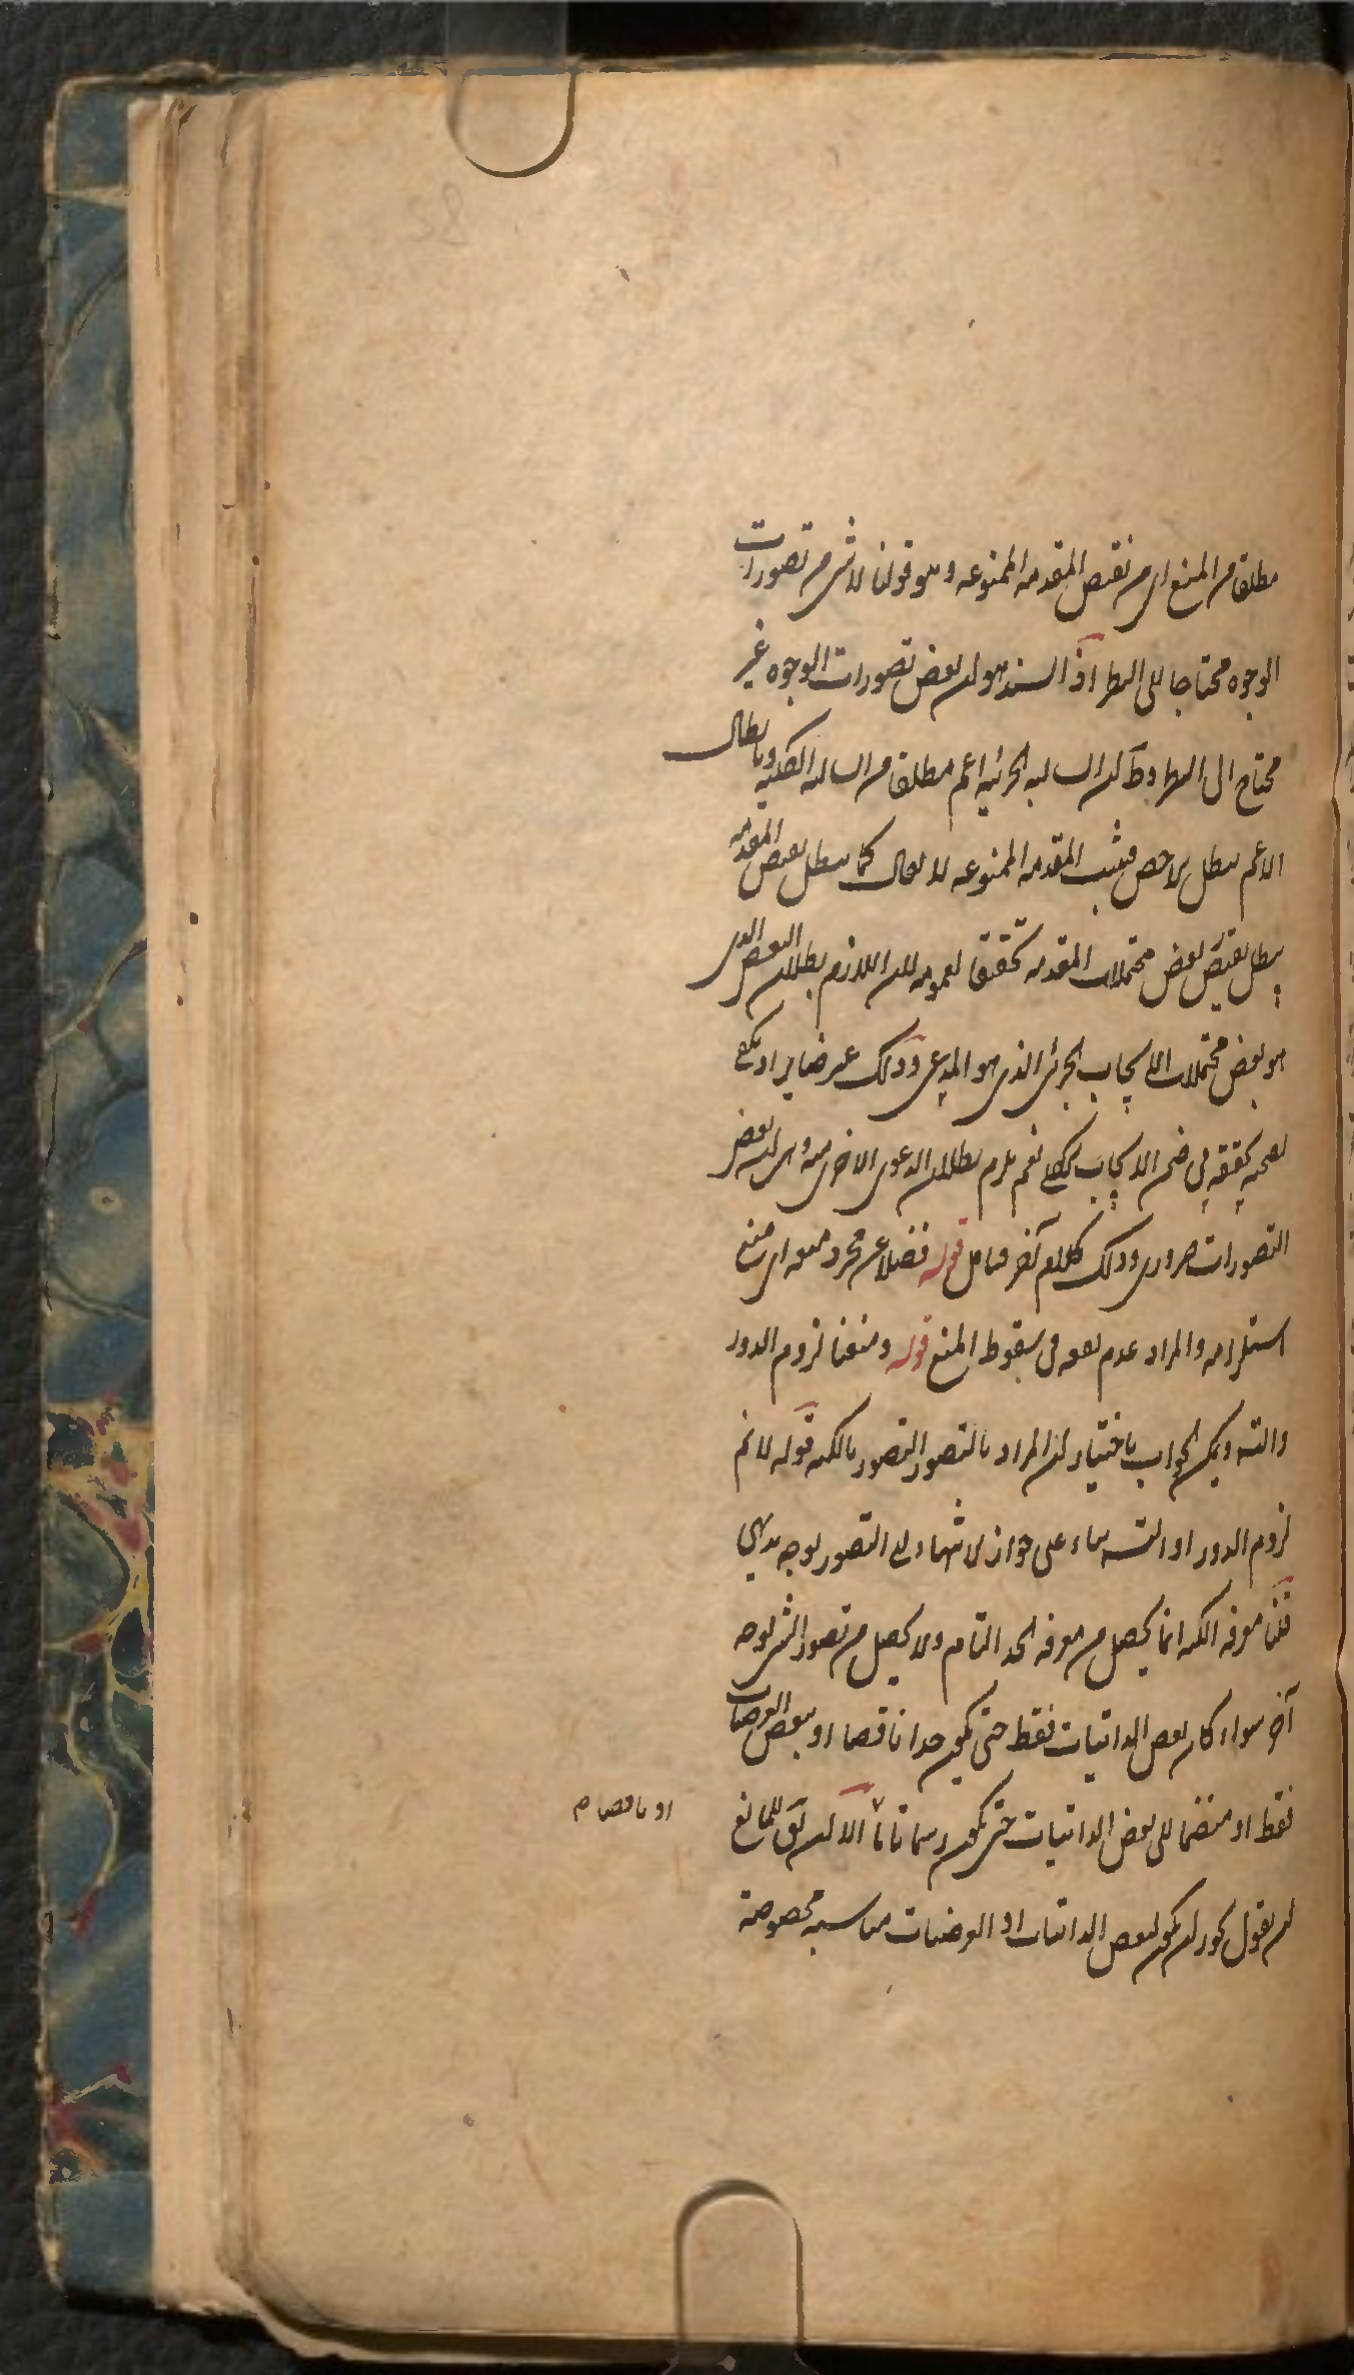 مطلقا من المنع اى من نقيض المقدمه الممنوعه وهو قولنا لا شى من تصورات
الوجوه محتاجا الى النظر اذ السند هو ان بعض تصورات الوجوه غير
محتاج الى النظر وظ ان السالبه الجزئيه اعم مطلقا من السالبه الكليه وبابطال
الاعم يبطل الاخص فيثبت المقدمه الممنوعه لا يقال كما يبطل نقيض المقدمه
يبطل نقيض بعض محتملات المقدمه تحقيقا لعمومه لان اللازم بطلان البعض الذى
هو بعض محتملات الايجاب الجزئى الذى هو المدعى وذلك غير ضاير اذ يكفى
لصحته تحققه فى ضمن الايجاب الكلى نعم يلزم بطلان الدعوى الاخرى منه وهى ان بعض
التصورات ضرورى وذلك كلام آخر فتامل قوله فضلا عن مجرد منعه اى منع
استلزامه والمراد عدم نفعه فى سقوط المنع قوله ومنعنا لزوم الدور
والتسه ويمكن الجواب باختيار ان المراد بالتصور التصور بالكنه قوله لانم
لزوم الدور او التسه بناء على جواز الانتهاء الى التصور بوجه بديهى
قلنا معرفه الكنه انما يحصل من معرفه الحد التام ولا يحصل من تصور الشى بوجه
آخر سواء كان بعض الذاتيات فقط حتى يكون حدا ناقصا او ببعض العرضيات
فقط او منضما الى بعض الذاتيات حتى يكون رسما تاما الا ان يق للمانع
او ناقصا م
ان يقول يجوز ان يكون لبعض الذاتيات او العرضيات مناسبه مخصوصة